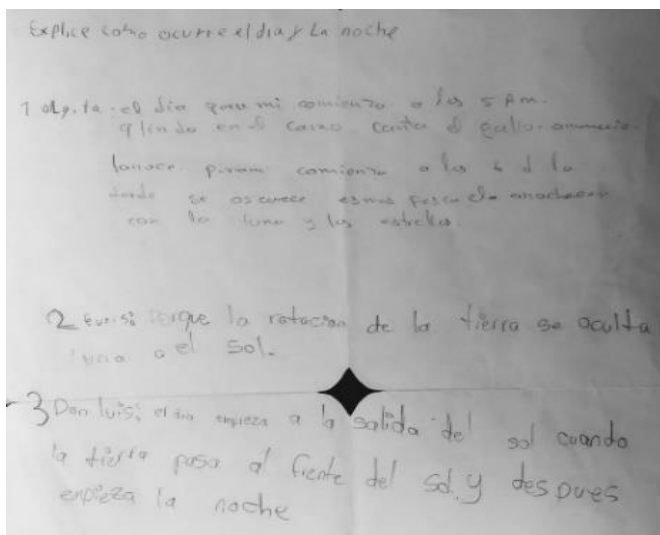 Explice como ocurre el dia y La noche
1 olg.ta. el dia para mi comienza a las 5 Am.
q lindo en el campo canta el gallo. anuncio
para mi comienza a las 6 d la
tarde se oscurece es mas fresca el anochecer
con la luna y las estrellas.
2 Eunis: porque la rotacion de la tierra se oculta
luna o el sol.
3 Don luis: el dia empieza a la salida del sol cuando
la tierra pasa al frente del sol y despues
empieza la noche